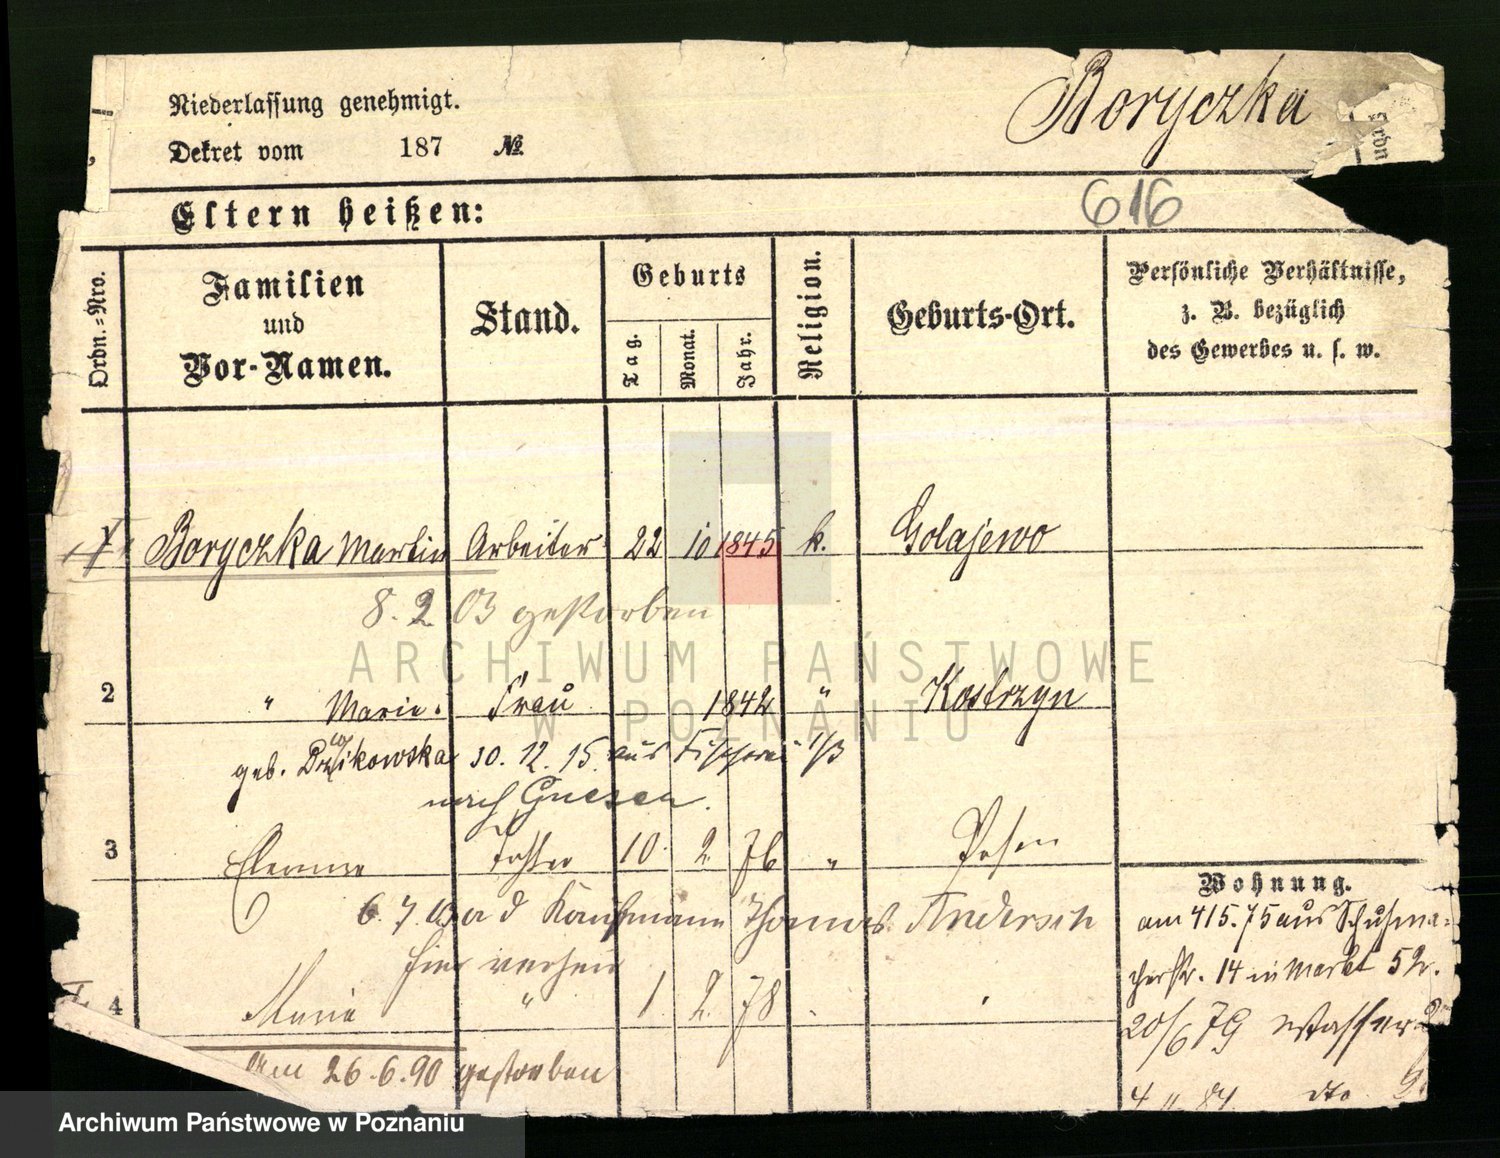 Niederlassung genehmigt.
Boryczka
Dekret vom 187 №
616
Eltern heißen:
Ordn.-Nro.
Familien und Vor-Namen.
Stand.
Geburts
Tag. Monat. Jahr.
Religion.
Geburts-Ort.
Persönliche Verhältnisse,
z. B. bezüglich
des Gewerbes u. s. w.
1 Boryczka Martin Arbeiter 22 10 1845 k. Golajewo
8. 2 03 gestorben
ARCHIWUM PAŃSTWOWE
W POZNANIU
2 " Marie. Frau 1842 " Kostrzyn
geb. 10. 12. 15. aus
nach Gnesen.
3 Tochter 10. 2. 76 " Posen
6. 7. a d Kaufmann Thomas Andersch
hier
4 Marie " 1. 2. 78
Am 26.6.90 gestorben
Wohnung.
am 415.75 aus Schuhma-
cherstr. 14 in Markt 52.
20/6 79 Wasser
4 11. 84. dto
Archiwum Państwowe w Poznaniu